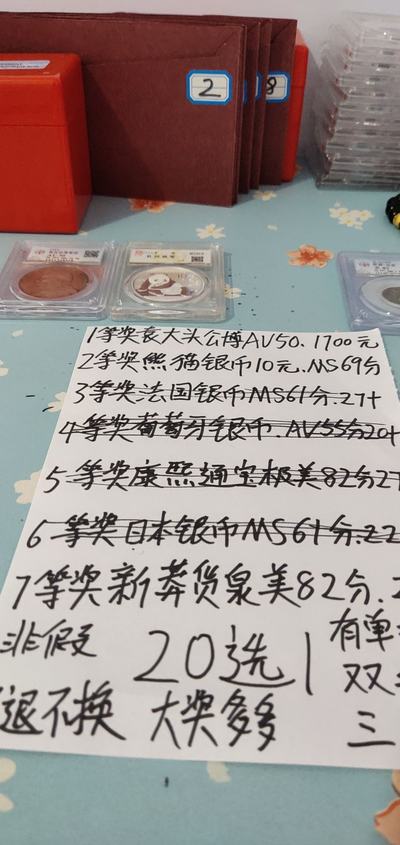 2
8
1等奖袁大头公博AV50.1700元
2等奖熊猫银币10元.MS69分
3等奖法国银币MS61分.27+
4等奖葡萄牙银币.AV55分20+
5等奖康熙通宝极美82分27
6等奖日本银币MS61分.22
7等奖新莽货泉美82分.2
非假 20选1 有单
双
退不换 大奖多多 三